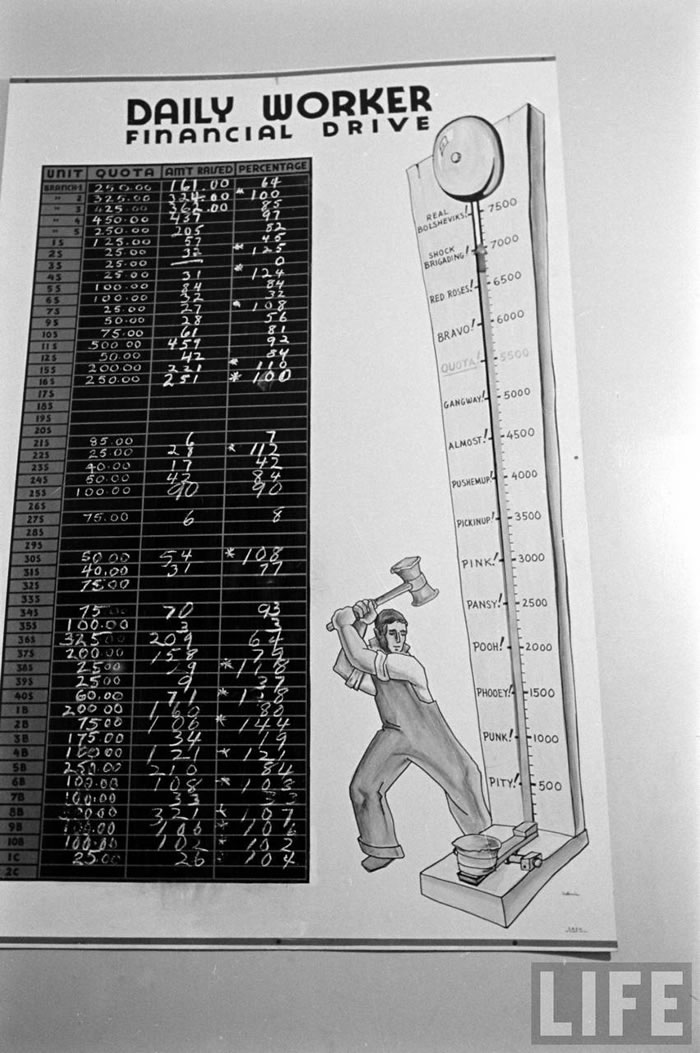 DAILY WORKER
FINANCIAL DRIVE
UNIT QUOTA AMT RAISED PERCENTAGE
BRANCH-1 250.00 161.00 64
" 2 325.00 324.00 * 100
" 3 425.00 362.00 85
" 4 450.00 437 97
" 5 250.00 205 82
1S 125.00 57 45
2S 25.00 32 * 125
3S 25.00 — 0
4S 25.00 31 * 124
5S 100.00 84 84
6S 100.00 32 32
7S 25.00 27 * 108
9S 50.00 28 56
10S 75.00 61 81
11S 500.00 459 92
12S 50.00 42 84
15S 200.00 221 * 110
16S 250.00 251 * 100
17S
18S
19S
20S
21S 85.00 6 7
22S 25.00 28 * 112
23S 40.00 17 42
24S 50.00 42 84
25S 100.00 90 90
26S
27S 75.00 6 8
28S
29S
30S 50.00 54 * 108
31S 40.00 31 77
32S 75.00
33S
34S 75 70 93
35S 100.00 3 3
36S 325.00 209 64
37S 200.00 158 79
38S 25.00 29 *
39S 25.00 9 37
40S 60.00 71 * 118
1B 200.00 160 80
2B 75.00 * 144
3B 175.00 34 19
4B 100.00 121 * 121
5B 250.00 210 84
6B 100.00 108 * 108
7B 100.00 33 33
8B 321 * 107
9B 100.00 106 * 106
10B 100.00 102 * 102
1C 25.00 26 * 104
2C
REAL BOLSHEVIKS! 7500
SHOCK BRIGADING! 7000
6500
RED ROSES!
BRAVO! 6000
QUOTA! 5500
GANGWAY! 5000
ALMOST! 4500
PUSHEMUP! 4000
PICKINUP! 3500
PINK! 3000
PANSY! 2500
POOH! 2000
PHOOEY! 1500
PUNK! 1000
PITY! 500
LIFE